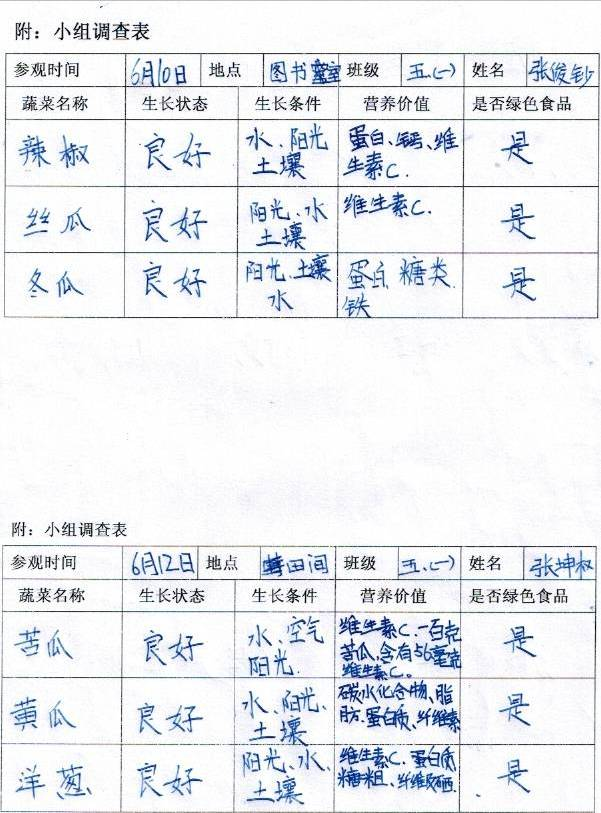 附：小组调查表
参观时间 6月10日 地点 图书室 班级 五.(一) 姓名 张俊钞
蔬菜名称 生长状态 生长条件 营养价值 是否绿色食品
辣椒 良好 水、阳光 土壤 蛋白、钙、维生素C. 是
丝瓜 良好 阳光、水 土壤 维生素C. 是
冬瓜 良好 阳光、土壤 水 蛋白 糖类 铁 是
附：小组调查表
参观时间 6月12日 地点 田间 班级 五.(一) 姓名 张坤权
蔬菜名称 生长状态 生长条件 营养价值 是否绿色食品
苦瓜 良好 水、空气 阳光. 维生素C.一百克苦瓜,含有56毫克维生素C。 是
黄瓜 良好 水、阳光、土壤 碳水化合物、脂肪、蛋白质、纤维素 是
洋葱 良好 阳光、水、土壤 维生素C.蛋白质 糖粗、纤维及硒. 是